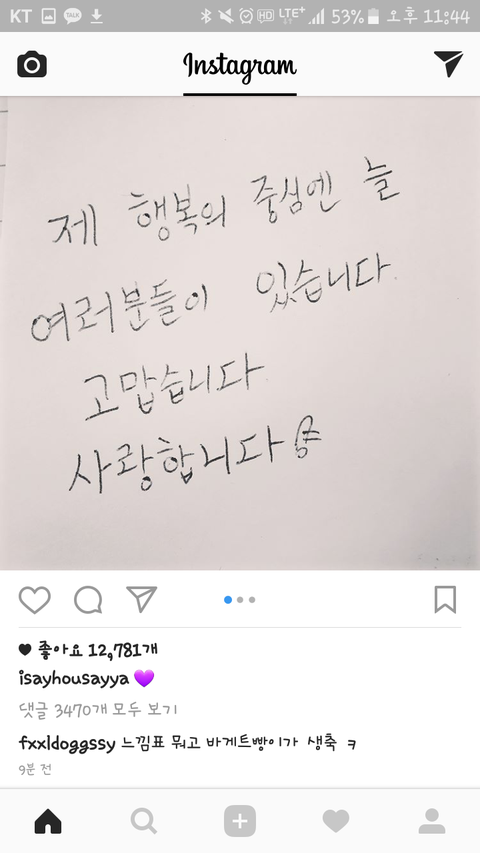 KT TALK HD LTE+ 53% 오후 11:44
Instagram
제 행복의 중심엔 늘
여러분들이 있습니다.
고맙습니다
사랑합니다
좋아요 12,781개
isayhousayya 💜
댓글 3470개 모두 보기
fxxldoggssy 느낌표 뭐고 바게트빵이가 생축 ㅋ
9분 전